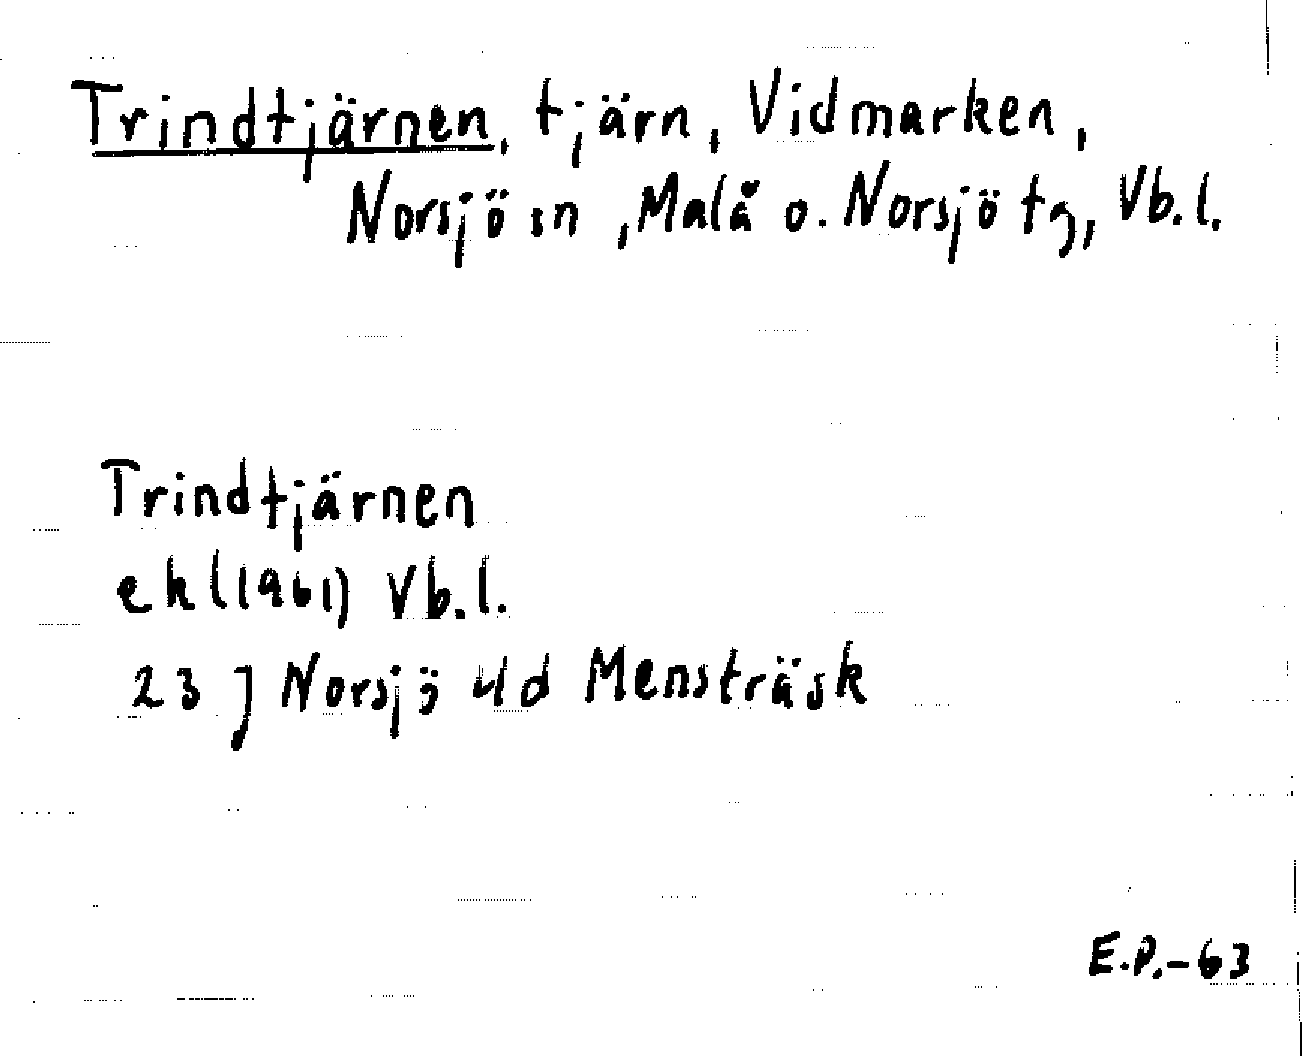 Trindtjärnen, tjärn, Vidmarken,
Norsjö sn, Malå o. Norsjö tg, Vb.l.
Trindtjärnen
ekl(1961) Vb.l.
23 J Norsjö 4d Mensträsk
E.P.-63